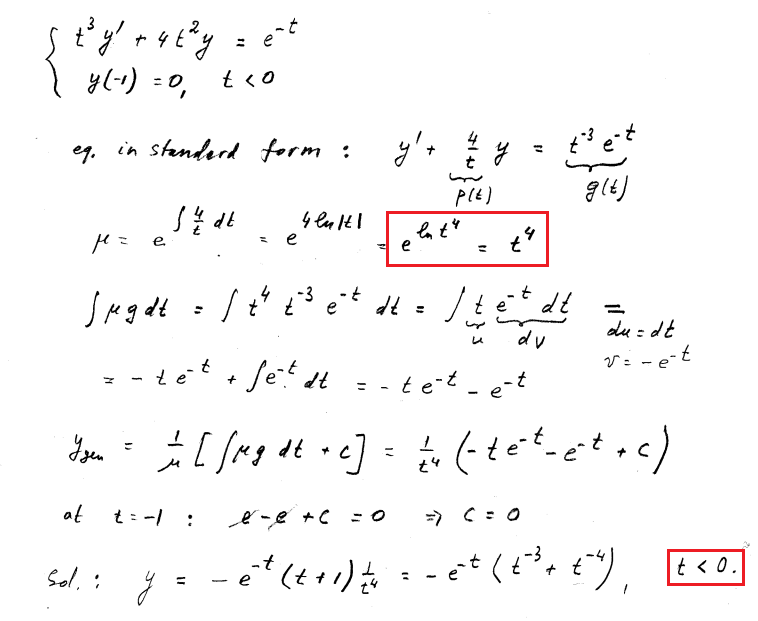 { t³y' + 4t²y = e^{-t}
y(-1) = 0, t < 0
eq. in standard form : y' + 4/t y = t^{-3} e^{-t}
p(t) g(t)
μ = e^{∫ 4/t dt} = e^{4 ln|t|} = e^{ln t⁴} = t⁴
∫ μ g dt = ∫ t⁴ t^{-3} e^{-t} dt = ∫ t e^{-t} dt =
u dv du = dt
v = - e^{-t}
= - t e^{-t} + ∫ e^{-t} dt = - t e^{-t} - e^{-t}
y_{gen} = 1/μ [ ∫ μ g dt + c ] = 1/t⁴ (- t e^{-t} - e^{-t} + c)
at t = -1 : e - e + c = 0 ⇒ c = 0
Sol. : y = - e^{-t} (t + 1) 1/t⁴ = - e^{-t} (t^{-3} + t^{-4}), t < 0.